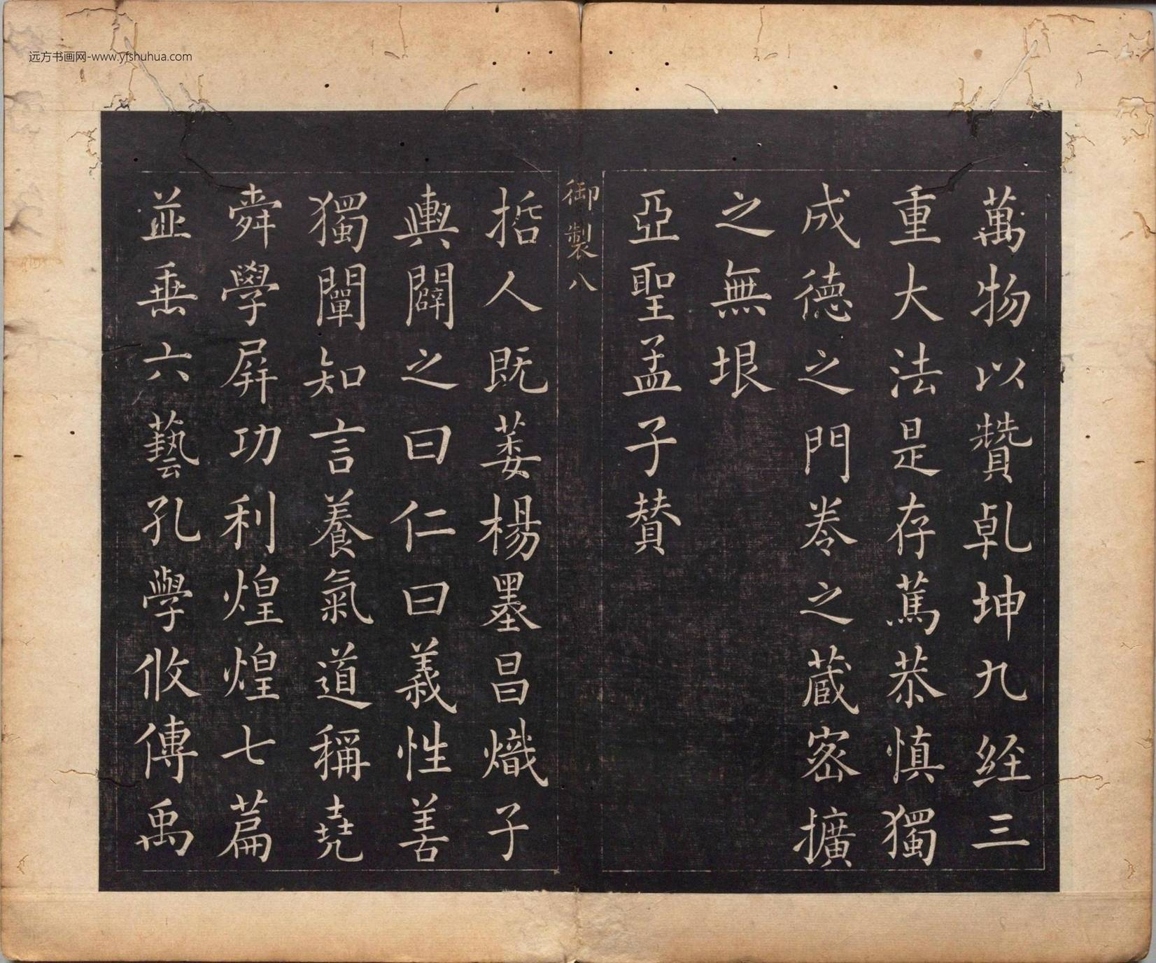 远方书画网-www.yfshuhua.com
萬物以贊乹坤九經三
重大法是存篤恭慎獨
成德之門卷之藏密擴
之無垠
亞聖孟子贊
御製八
哲人既萎楊墨昌熾子
輿闢之曰仁曰義性善
獨闡知言養氣道稱堯
舜學屏功利煌煌七篇
並垂六藝孔學攸傳禹